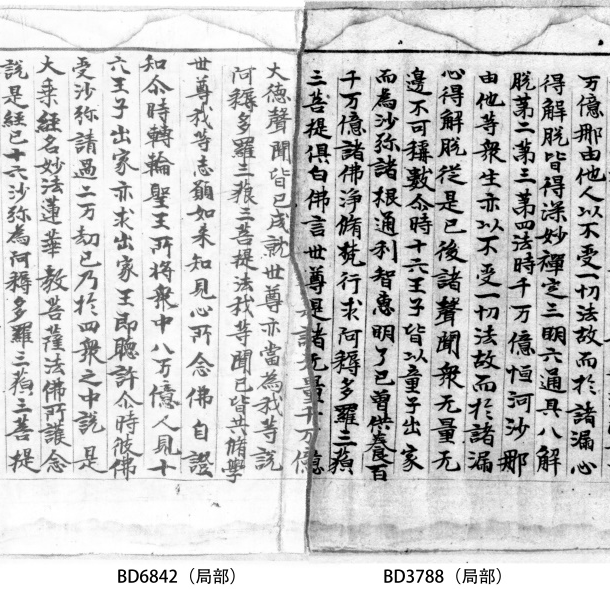 万億那由他人以不受一切法故而於諸漏心
得解脫皆得深妙禪定三明六通具八解
脫第二第三第四法時千万億恒河沙那
由他等衆生亦以不受一切法故而於諸漏
心得解脫從是已後諸聲聞衆无量无
邊不可稱數尒時十六王子皆以童子出家
而為沙弥諸根通利智惠明了已曾供養百
千万億諸佛淨脩梵行求阿耨多羅三藐
三菩提俱白佛言世尊是諸无量千万億
大德聲聞皆已成就世尊亦當為我等說
阿耨多羅三藐三菩提法我等聞已皆共脩學
世尊我等志願如來知見心所念佛自證
知尒時轉輪聖王所將衆中八万億人見十
六王子出家亦求出家王即聽許尒時彼佛
受沙弥請過二万劫已乃於四衆之中說是
大乘經名妙法蓮華教菩薩法佛所護念
說是經已十六沙弥為阿耨多羅三藐三菩提
BD6842（局部）
BD3788（局部）